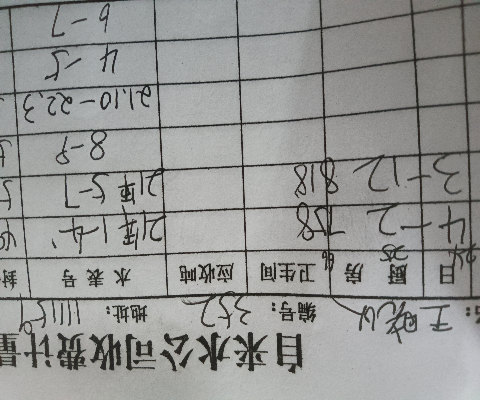 自来水公司收费计量
编号: 352 地址:
日 厨房 卫生间 应收吨 水表号 封
4-2 758 21年1-4
3-12 818 21年5-7
8-9
21.10-22.3
4-5
6-7